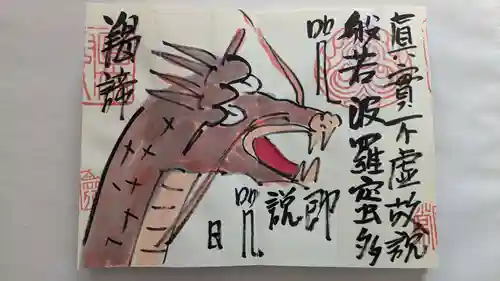 眞實不虚故説
般若波羅蜜多
呪
即
説
呪
曰
羯諦